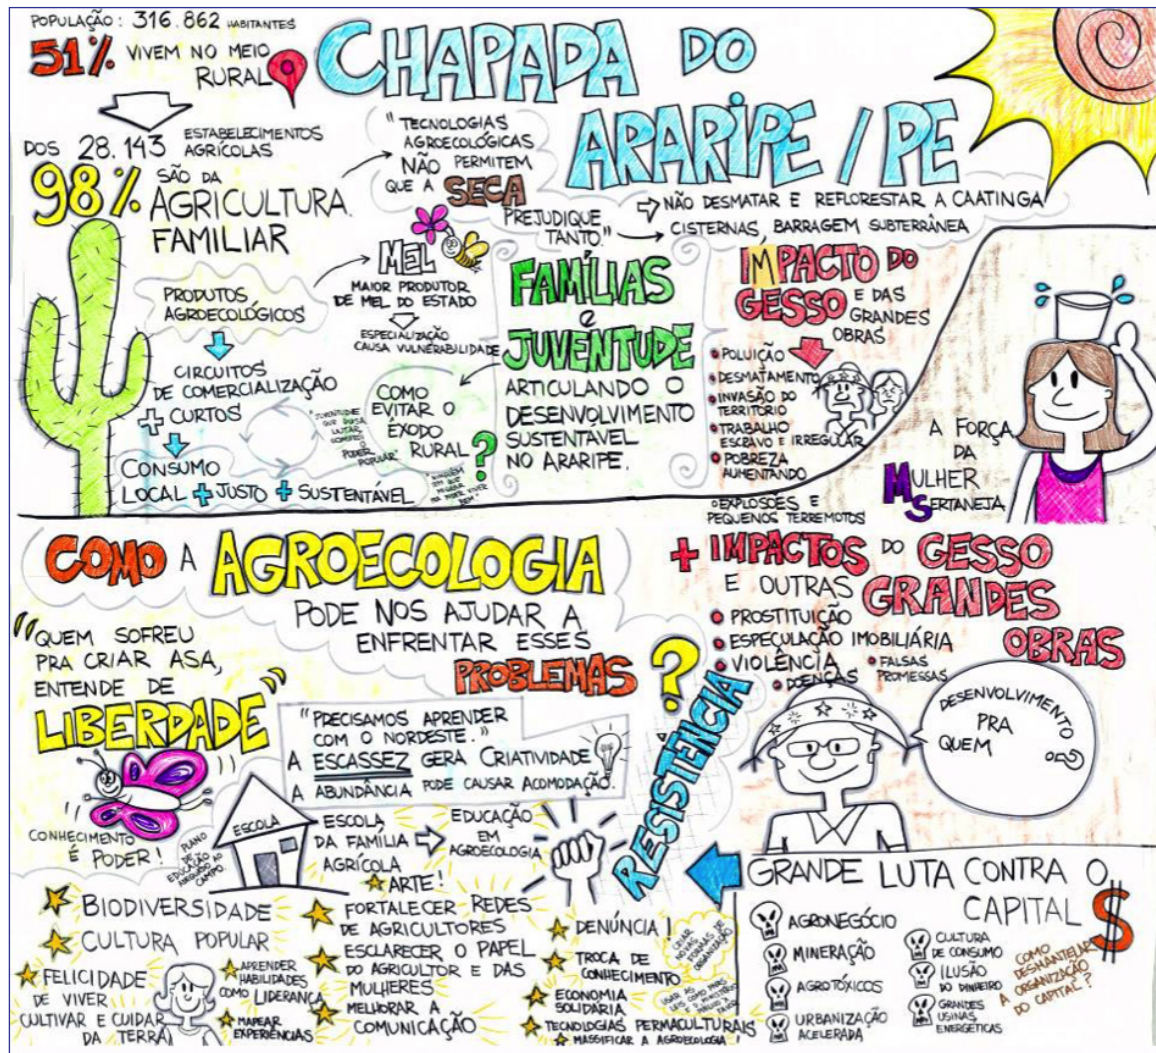 POPULAÇÃO: 316.862 HABITANTES
51% VIVEM NO MEIO
RURAL
DOS 28.143 ESTABELECIMENTOS
AGRÍCOLAS
98% SÃO DA
AGRICULTURA
FAMILIAR
CHAPADA DO
ARARIPE / PE
"TECNOLOGIAS
AGROECOLÓGICAS
NÃO PERMITEM
QUE A SECA
PREJUDIQUE
TANTO."
NÃO DESMATAR E REFLORESTAR A CAATINGA
CISTERNAS, BARRAGEM SUBTERRÂNEA
PRODUTOS
AGROECOLÓGICOS
CIRCUITOS
DE COMERCIALIZAÇÃO
+ CURTOS
CONSUMO
LOCAL + JUSTO + SUSTENTÁVEL
MEL
MAIOR PRODUTOR
DE MEL DO ESTADO
ESPECIALIZAÇÃO
CAUSA VULNERABILIDADE
FAMÍLIAS
e
JUVENTUDE
ARTICULANDO O
DESENVOLVIMENTO
SUSTENTÁVEL
NO ARARIPE.
COMO
EVITAR O
ÊXODO
RURAL ?
"JUVENTUDE
QUE OUSA
LUTAR
CONSTRÓI O
PODER
POPULAR"
IMPACTO DO
GESSO E DAS
GRANDES
OBRAS
POLUIÇÃO
DESMATAMENTO
INVASÃO DO
TERRITÓRIO
TRABALHO
ESCRAVO E IRREGULAR
POBREZA
AUMENTANDO
EXPLOSÕES E
PEQUENOS TERREMOTOS
A FORÇA
DA
MULHER
SERTANEJA
COMO A AGROECOLOGIA
PODE NOS AJUDAR A
ENFRENTAR ESSES
PROBLEMAS ?
"QUEM SOFREU
PRA CRIAR ASA,
ENTENDE DE
LIBERDADE"
CONHECIMENTO
É PODER!
"PRECISAMOS APRENDER
COM O NORDESTE."
A ESCASSEZ GERA CRIATIVIDADE
A ABUNDÂNCIA PODE CAUSAR ACOMODAÇÃO.
PLANO
DE
EDUCAÇÃO
ADEQUADO AO
CAMPO.
ESCOLA
ESCOLA
DA FAMÍLIA
AGRÍCOLA
EDUCAÇÃO
EM
AGROECOLOGIA
RESISTÊNCIA
+ IMPACTOS DO GESSO
E OUTRAS GRANDES
OBRAS
PROSTITUIÇÃO
ESPECULAÇÃO IMOBILIÁRIA
VIOLÊNCIA
DOENÇAS
FALSAS
PROMESSAS
DESENVOLVIMENTO
PRA
QUEM ?
BIODIVERSIDADE
CULTURA POPULAR
FELICIDADE
DE VIVER
CULTIVAR E CUIDAR
DA TERRA
APRENDER
HABILIDADES
COMO LIDERANÇA
MAPEAR
EXPERIÊNCIAS
ARTE!
FORTALECER REDES
DE AGRICULTORES
ESCLARECER O PAPEL
DO AGRICULTOR E DAS
MULHERES
MELHORAR A
COMUNICAÇÃO
DENÚNCIA!
TROCA DE
CONHECIMENTO
ECONOMIA
SOLIDÁRIA
TECNOLOGIAS PERMACULTURAIS
MASSIFICAR A AGROECOLOGIA!
CRIAR
NOVAS
FORMAS DE
ORGANIZAÇÃO
GRANDE LUTA CONTRA O
CAPITAL $
AGRONEGÓCIO
MINERAÇÃO
AGROTÓXICOS
URBANIZAÇÃO
ACELERADA
CULTURA
DE CONSUMO
ILUSÃO
DO DINHEIRO
GRANDES
USINAS
ENERGÉTICAS
COMO
DESMANTELAR
A ORGANIZAÇÃO
DO CAPITAL?